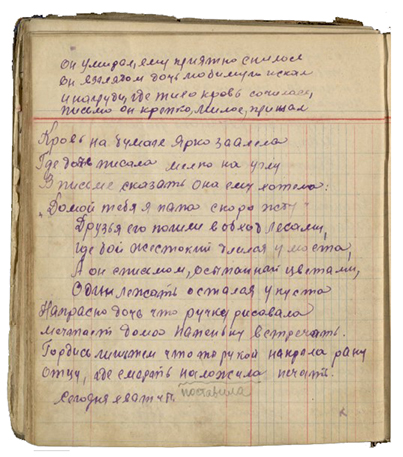 Он умирал, ему приятно снилося
Он взглядом дочь любимую искал
и на груди, где тихо кровь сочилася,
письмо он крепко, милое, прижал
Кровь на бумаге ярко заалела
Где дочь писала мелко на углу
В письме сказать она ему хотела:
"Домой тебя я папа скоро жду"
Друзья его пошли в обход лесами,
где бой жестокий длился у моста,
А он с письмом, осыпанный цветами,
Один лежать остался у куста
Напрасно дочь что ручку рисовала
мечтает дома папеньку встречать.
Гордись лишь тем что то рукой накрыла рану
Отцу, где смерть наложила печать.
поставила
Сегодня